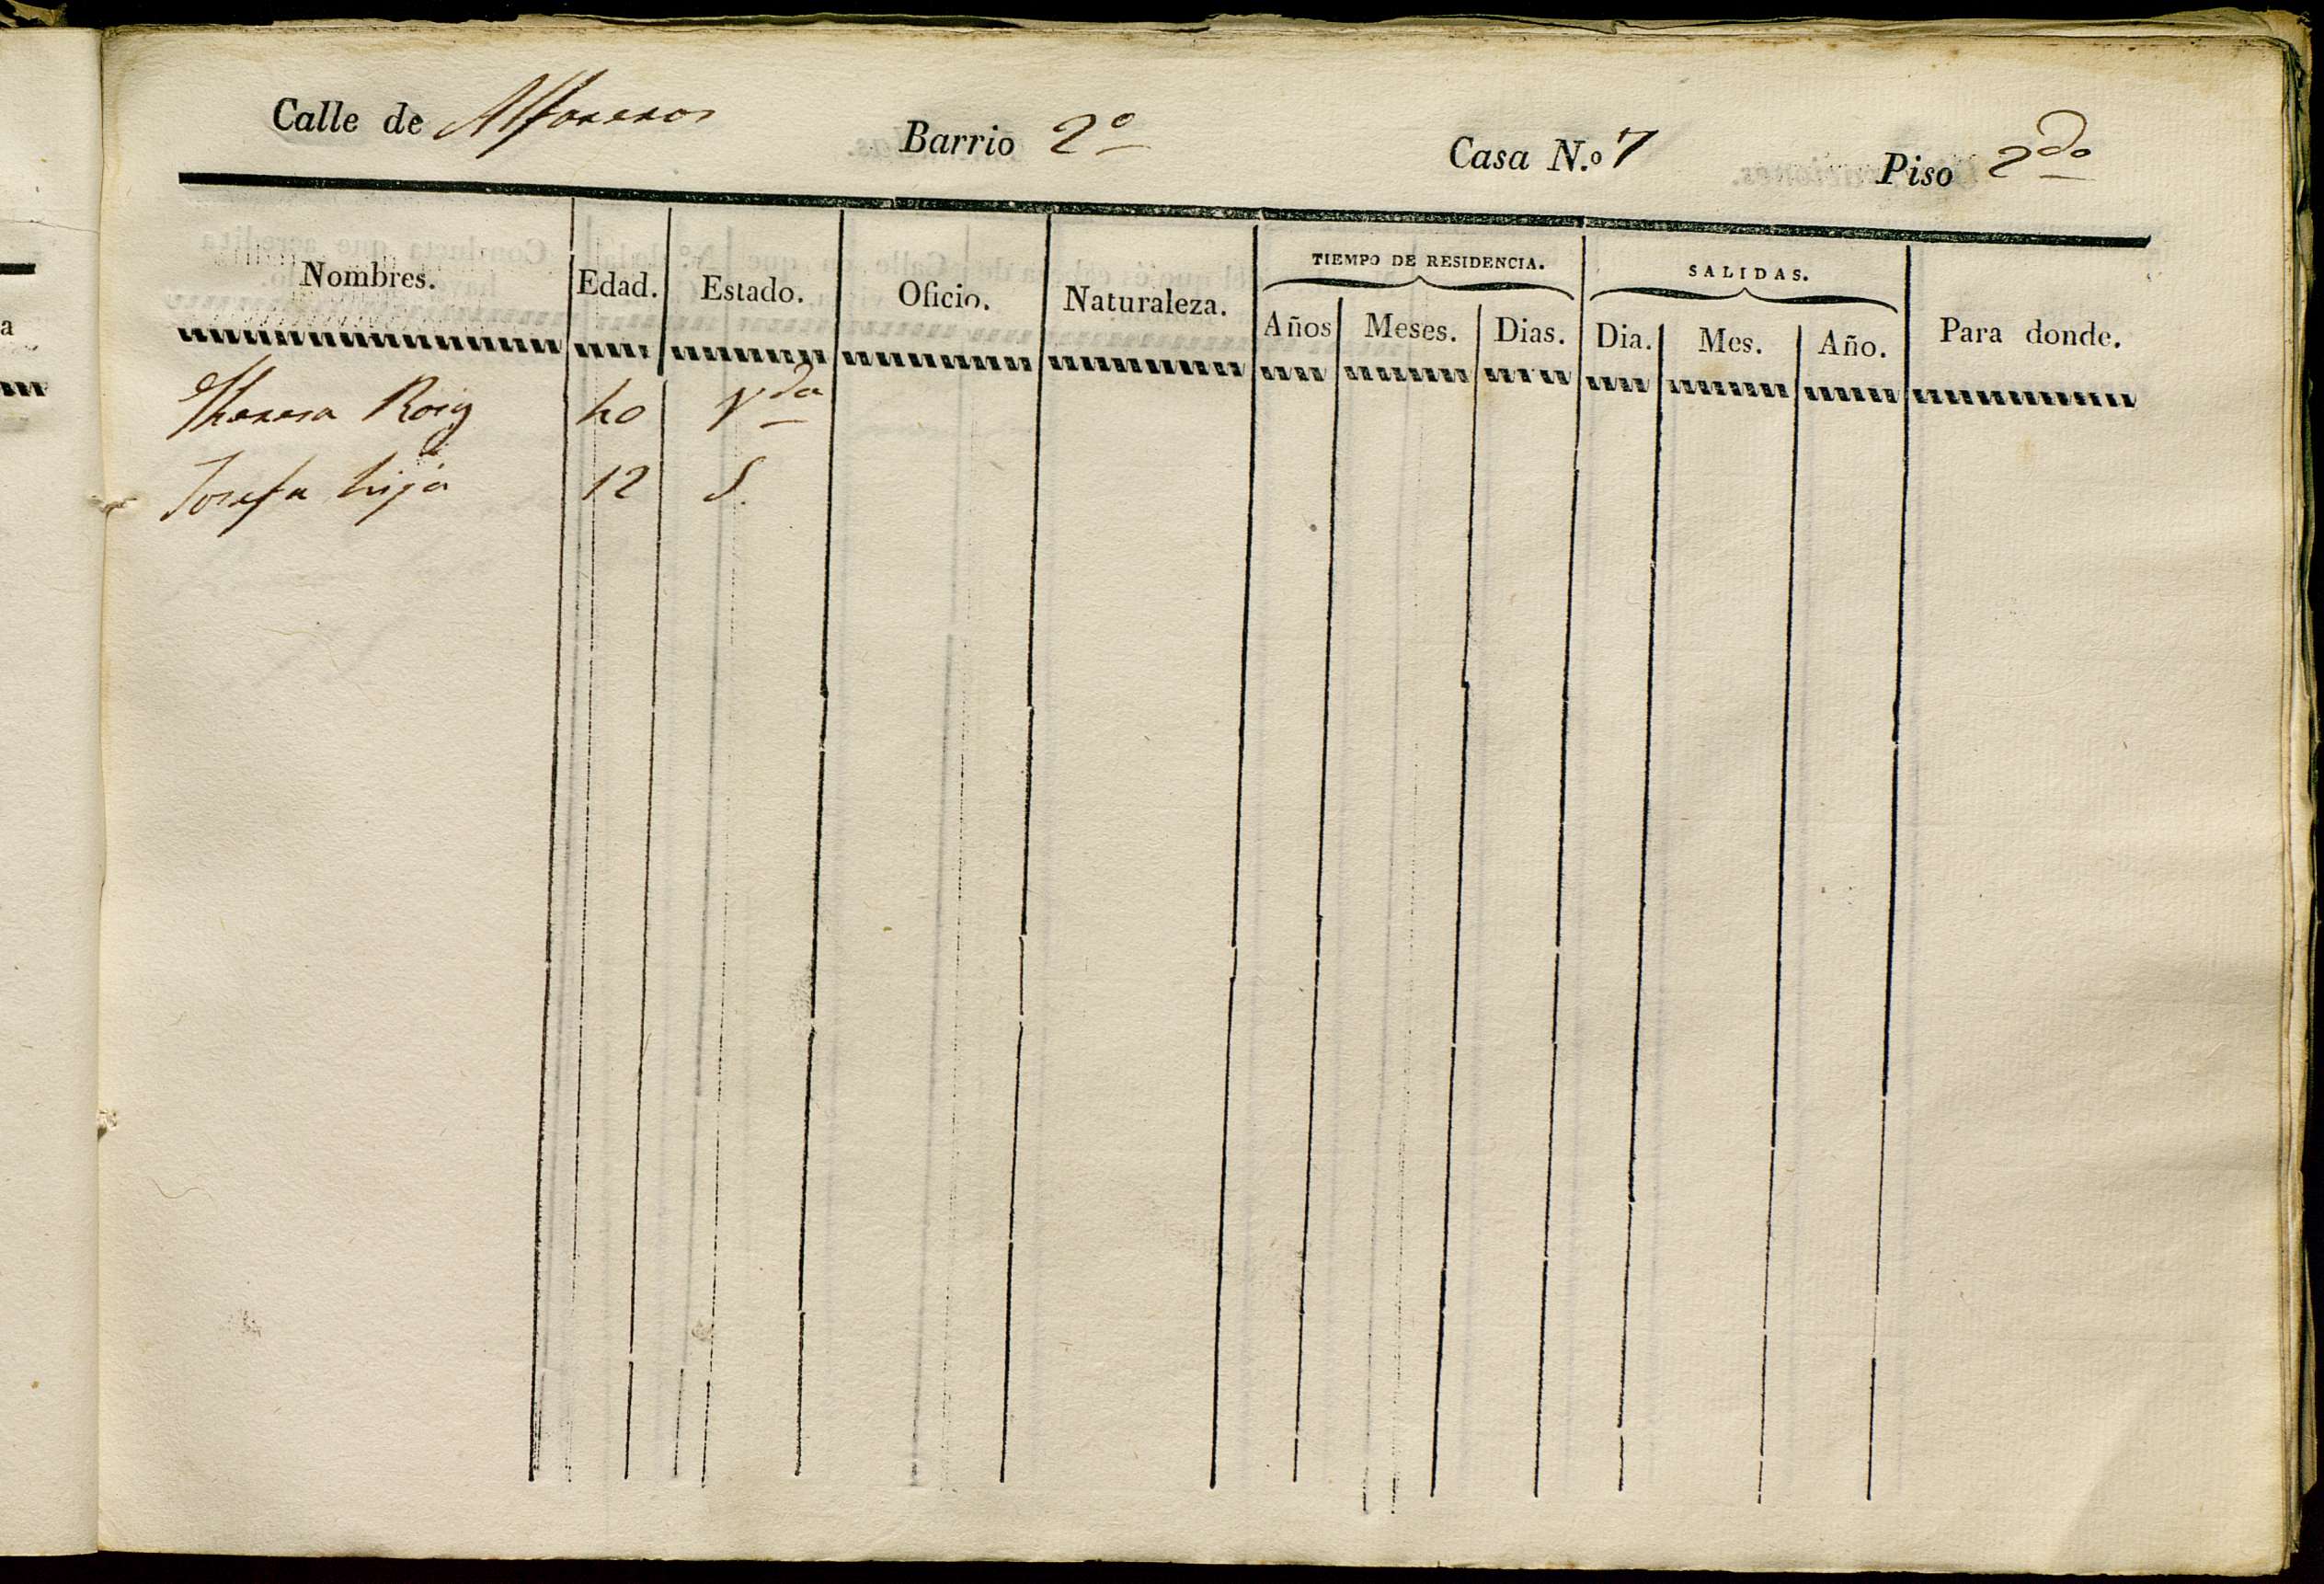 Calle de Alfareros Barrio 2º Casa N.º 7 Piso 2do
Nombres. Edad. Estado. Oficio. Naturaleza. TIEMPO DE RESIDENCIA. SALIDAS. Para donde.
Años Meses. Dias. Dia. Mes. Año.
Theresa Roig 40 Vda
Josefa hija 12 S.
a